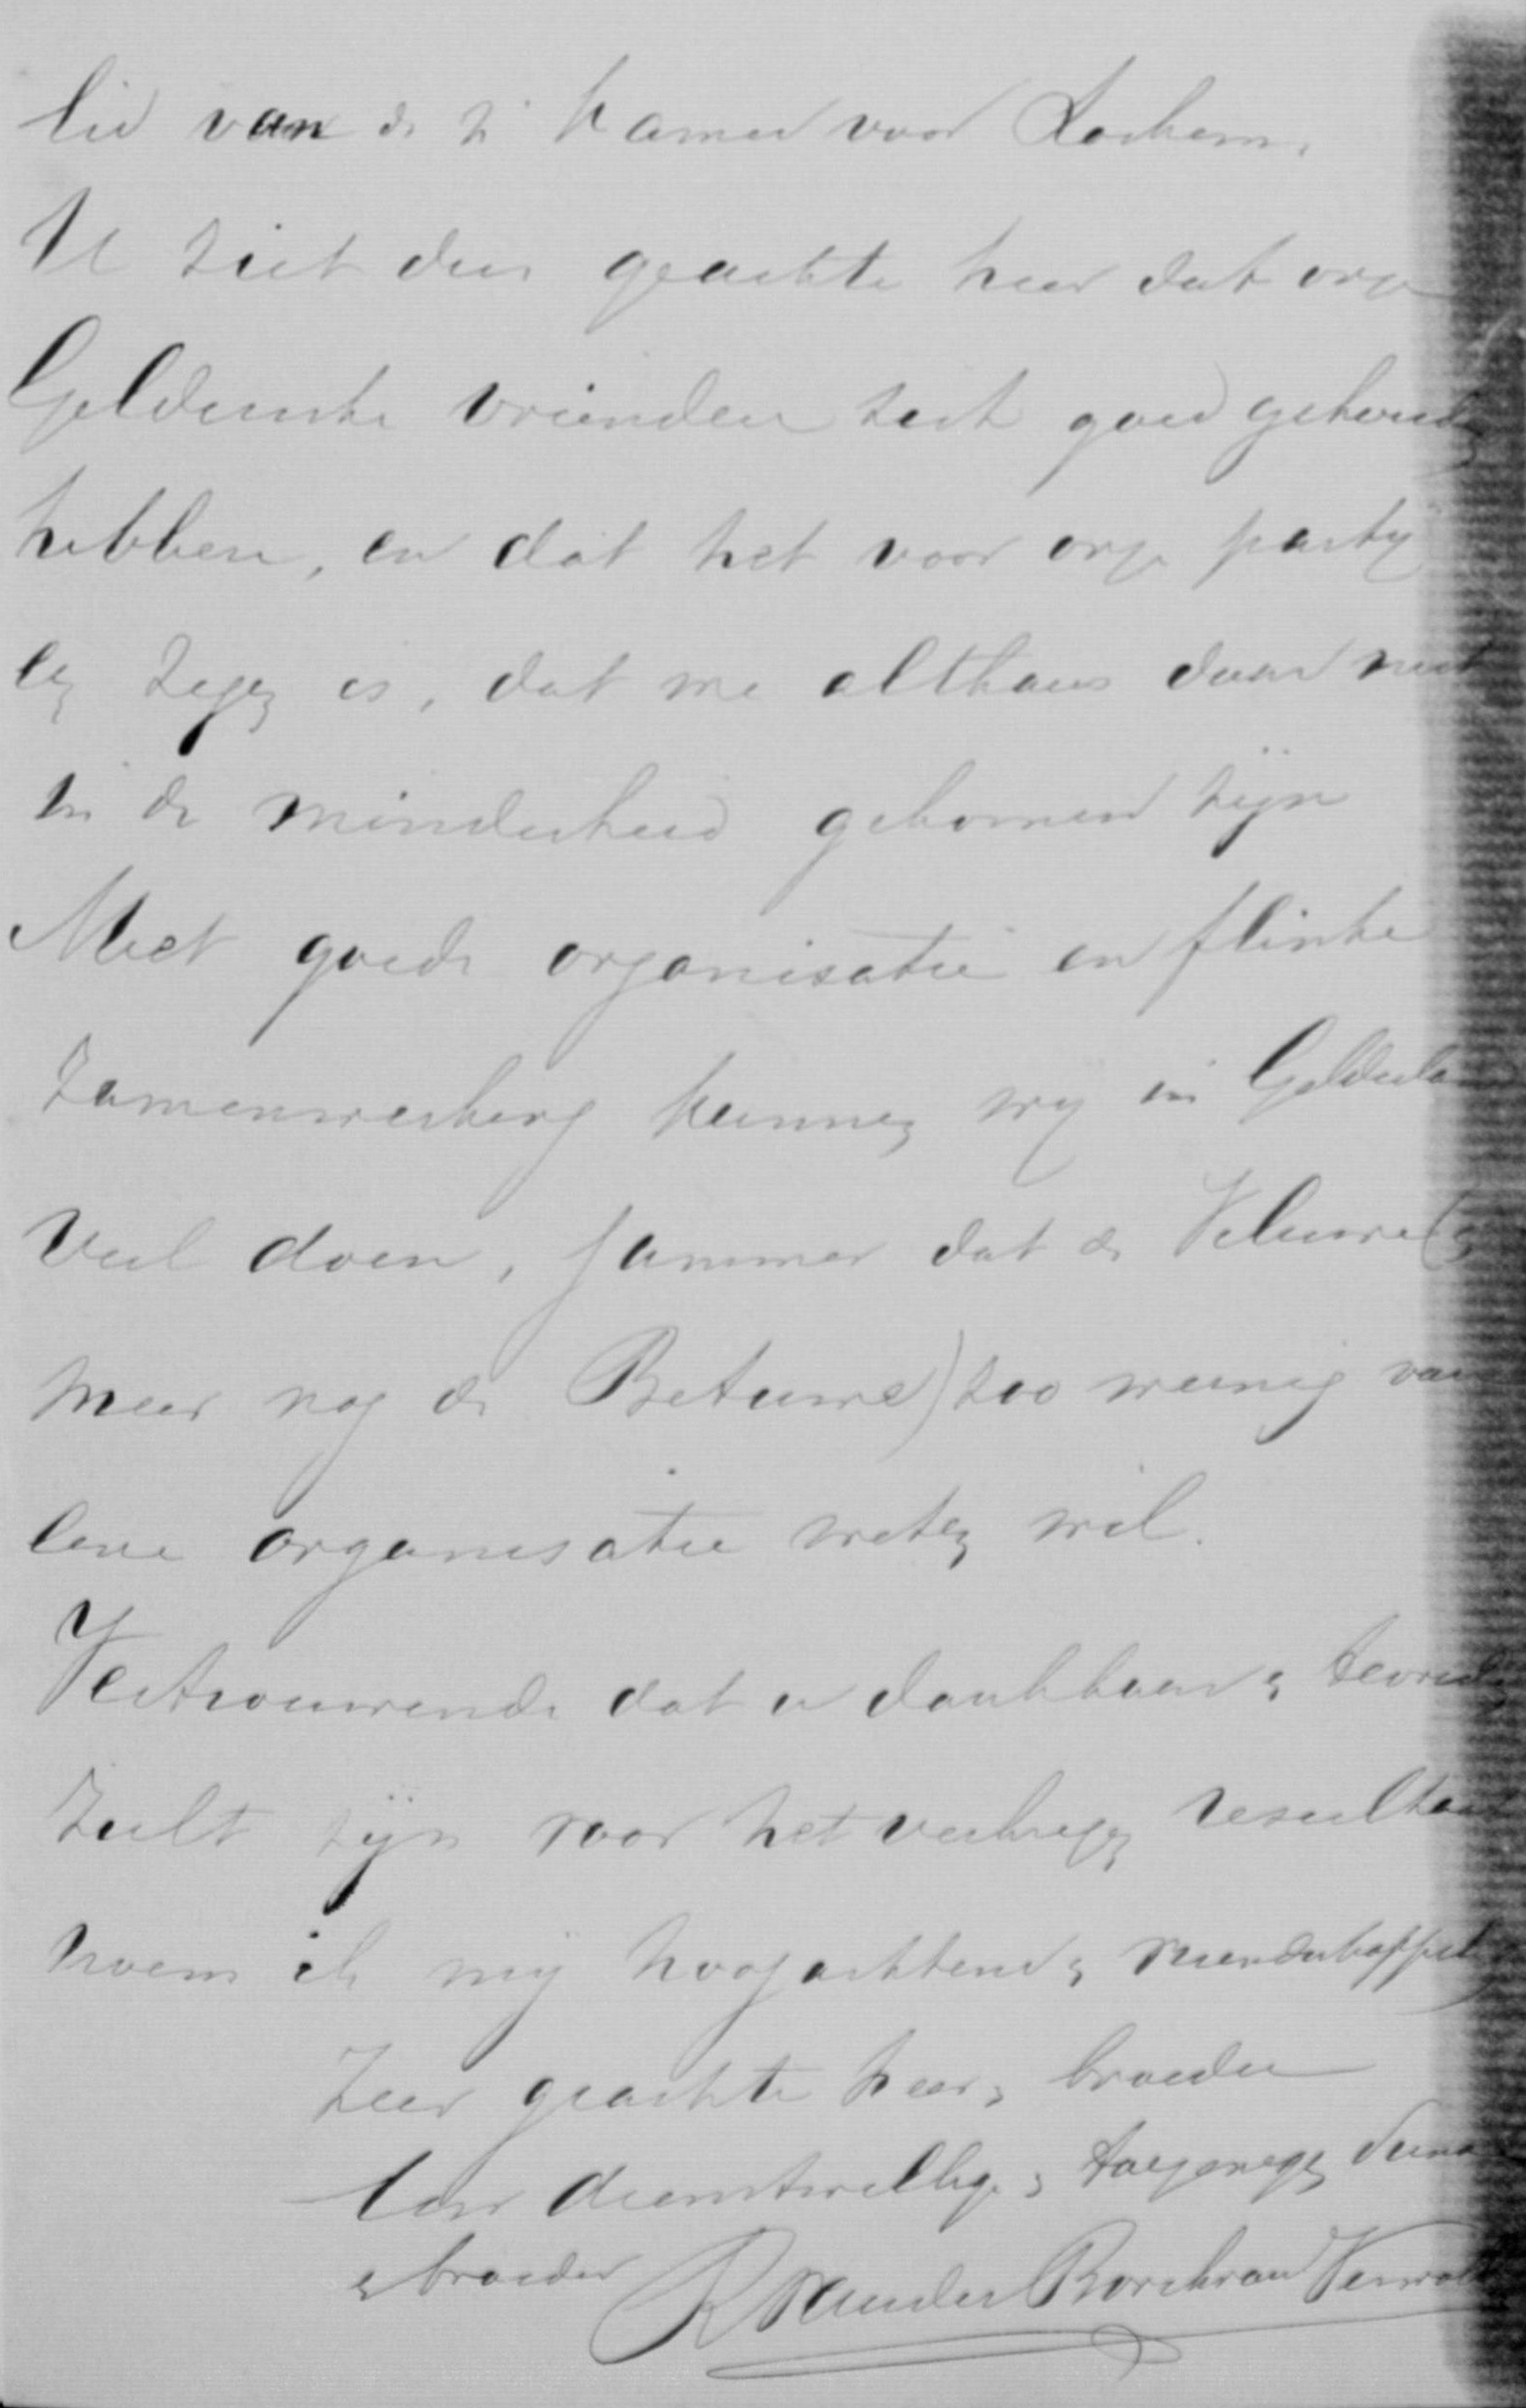 lid van de 2e Kamer voor Lochem.
U ziet dus geachte heer dat onze
Geldersche vrienden zich goed gehouden
hebben, en dat het voor onze party
een zegen is, dat we althans daar niet
in de minderheid gekomen zijn
Met goede organisatie en flinke
zamenwerking kunnen wy in Gelderla
veel doen, jammer dat de Veluwe (en
meer nog de Betuwe) zoo weinig van
eene organisatie weten wil.
Vertrouwende dat u dankbaar en tevreden
zult zijn voor het verkregen resultaat
noem ik mij hoogachtend en vriendschappel
Zeer geachte heer en broeder
Uw dienstwillige en toegenegen dienaa
en broeder R van der Borch van Verwol